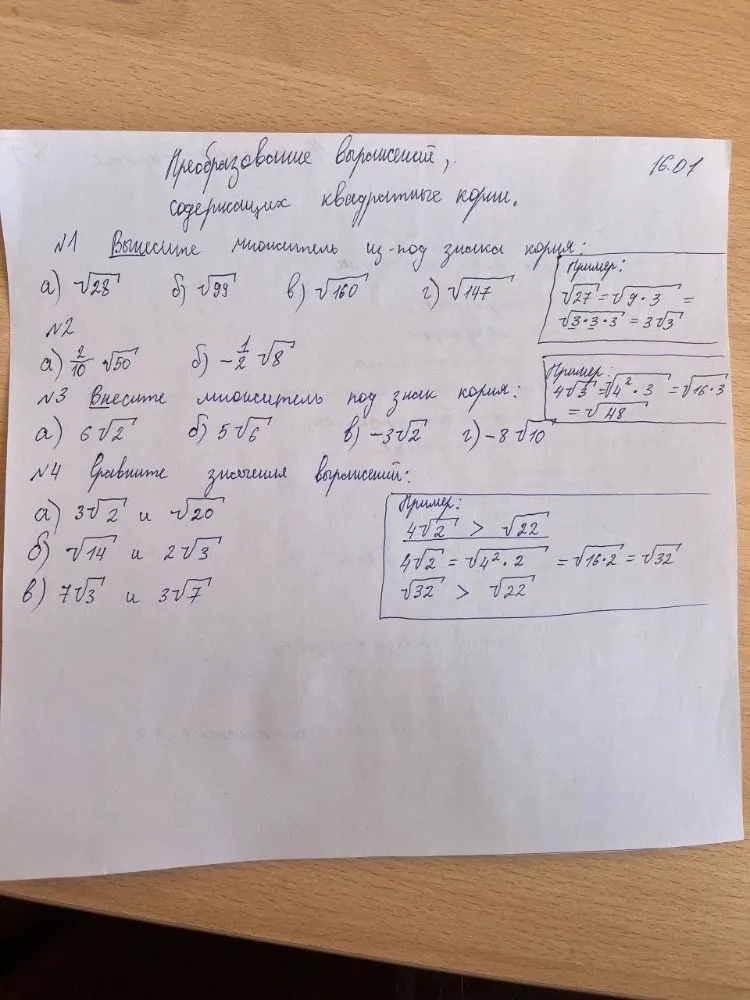 Преобразование выражений, 16.01
содержащих квадратные корни.
№1 Вынесите множитель из-под знака корня:
а) √28 б) √99 в) √160 г) √147
Пример:
√27 = √9·3 =
√3·3·3 = 3√3
№2
а) 2/10 √50 б) -1/2 √8
№3 Внесите множитель под знак корня:
а) 6√2 б) 5√6 в) -3√2 г) -8√10
Пример:
4√3 = √4²·3 = √16·3
= √48
№4 Сравните значения выражений:
а) 3√2 и √20
б) √14 и 2√3
в) 7√3 и 3√7
Пример:
4√2 > √22
4√2 = √4²·2 = √16·2 = √32
√32 > √22